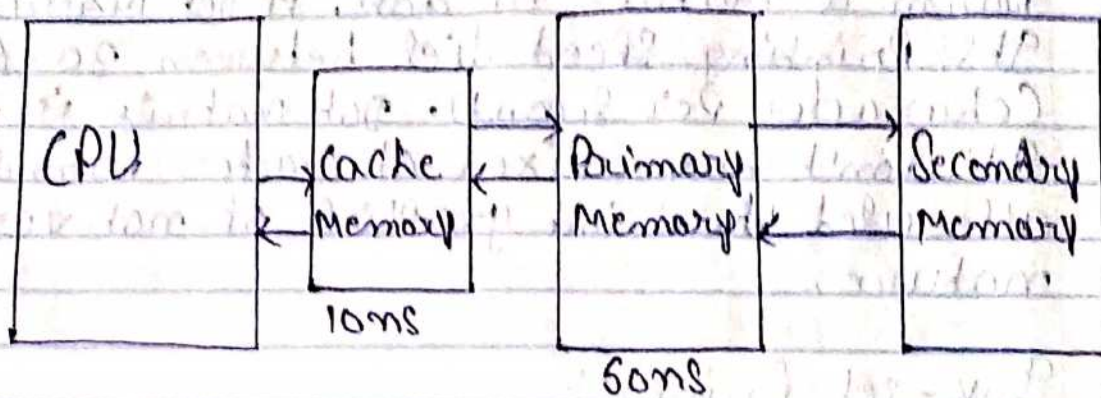 CPU
Cache
Memory
10ns
Primary
Memory
50ns
Secondry
Memory